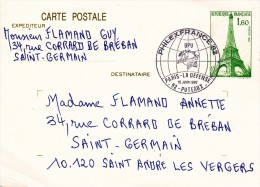 CARTE POSTALE
EXPEDITEUR
Monsieur FLAMAND GUY
34, rue CORRARD DE BRÉBAN
SAINT-GERMAIN
PHILEXFRANCE 82
UPU
PARIS - LA DEFENSE
92 - PUTEAUX
1,60
DESTINATAIRE
Madame FLAMAND ANNETTE
34, rue CORRARD DE BRÉBAN
SAINT-GERMAIN
10.120 SAINT ANDRÉ LES VERGERS